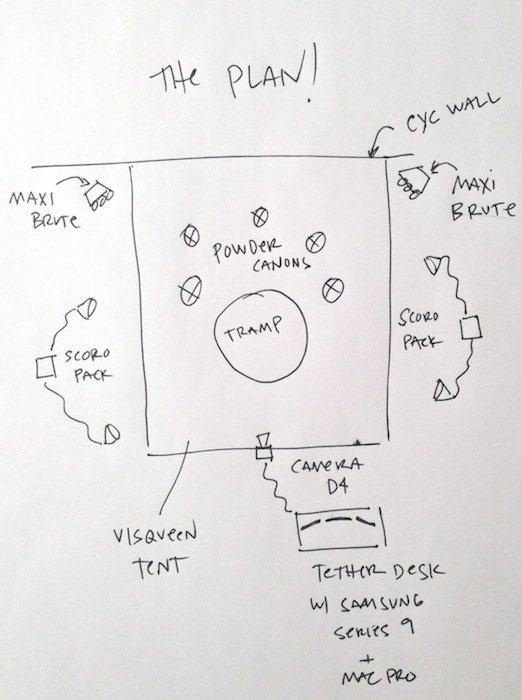 THE PLAN!
CYC WALL
MAXI
BRUTE
MAXI
BRUTE
POWDER
CANONS
TRAMP
SCORO
PACK
SCORO
PACK
CAMERA
D4
VISQUEEN
TENT
TETHER DESK
W/ SAMSUNG
SERIES 9
+
MAC PRO